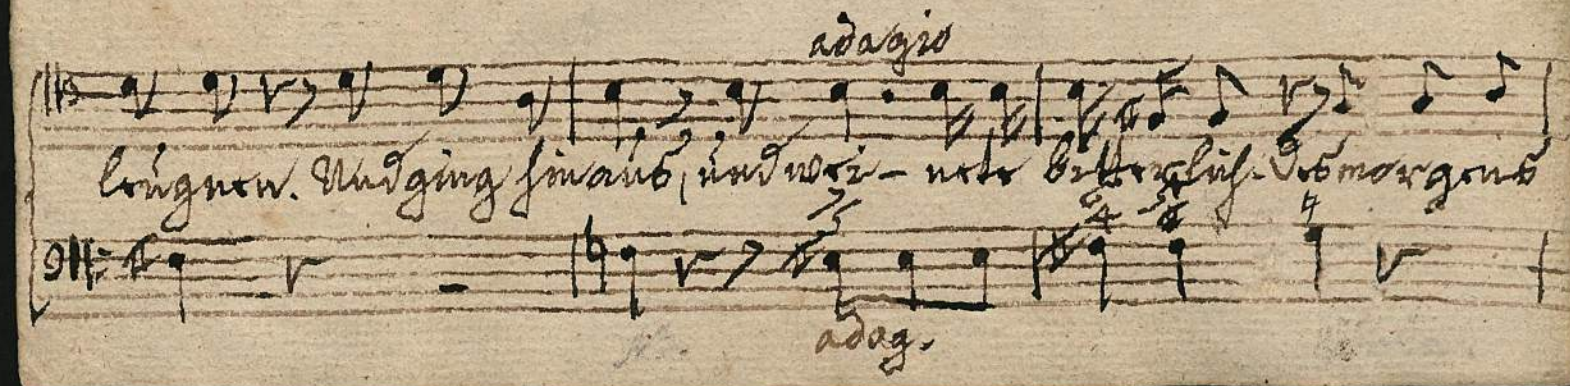 adagio
leugnen. Und ging hinaus, und wei - nete bitterlich. Des morgens
adag.